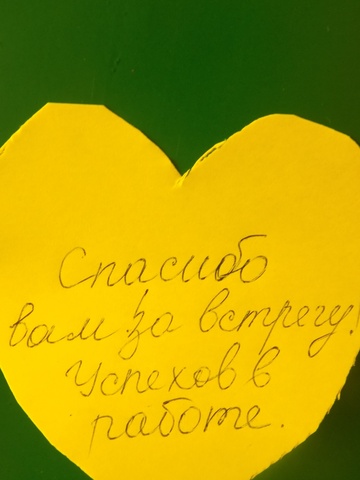 Спасибо
вам за встречу!
Успехов в
работе.